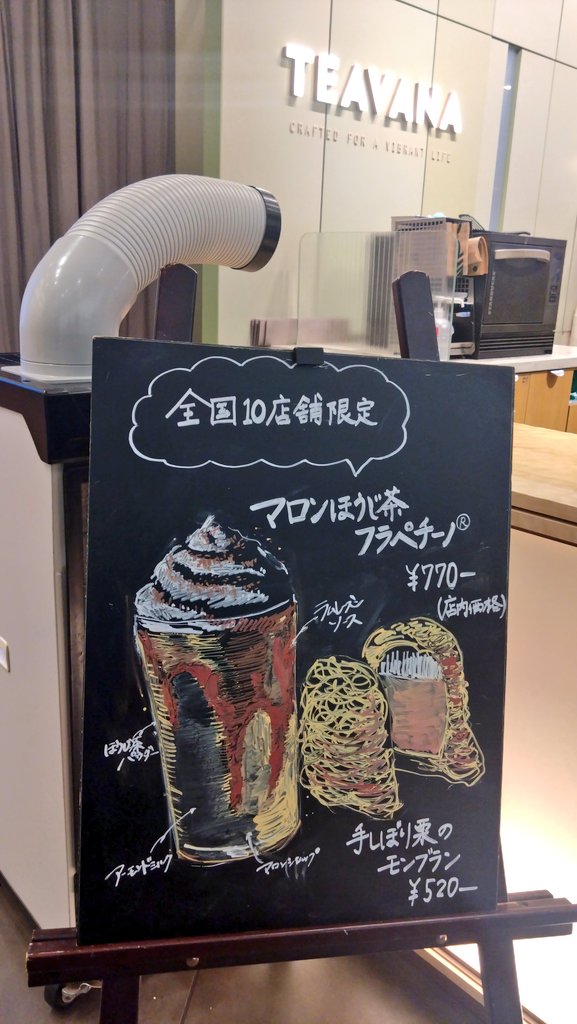 TEAVANA
CRAFTED FOR A VIBRANT LIFE
全国10店舗限定
マロンほうじ茶
フラペチーノ®
¥770-
(店内価格)
ソース
ほうじ茶
パウダー
アーモンドミルク
マロンシロップ
手しぼり栗の
モンブラン
¥520-